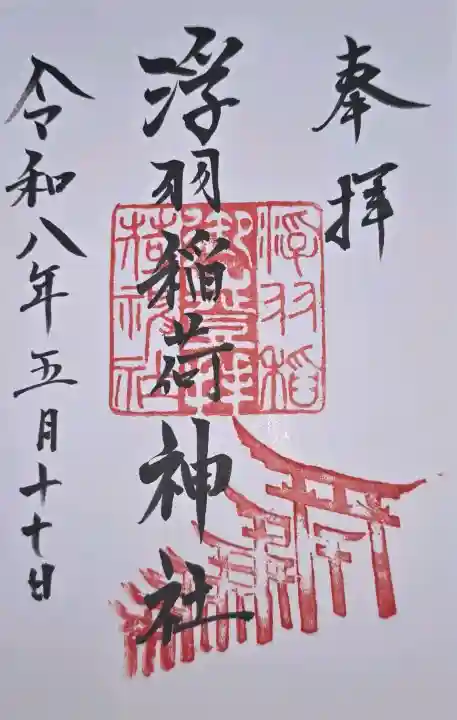 奉拝
浮羽稲荷神社
令和八年五月十十日
浮羽稲
荷神社